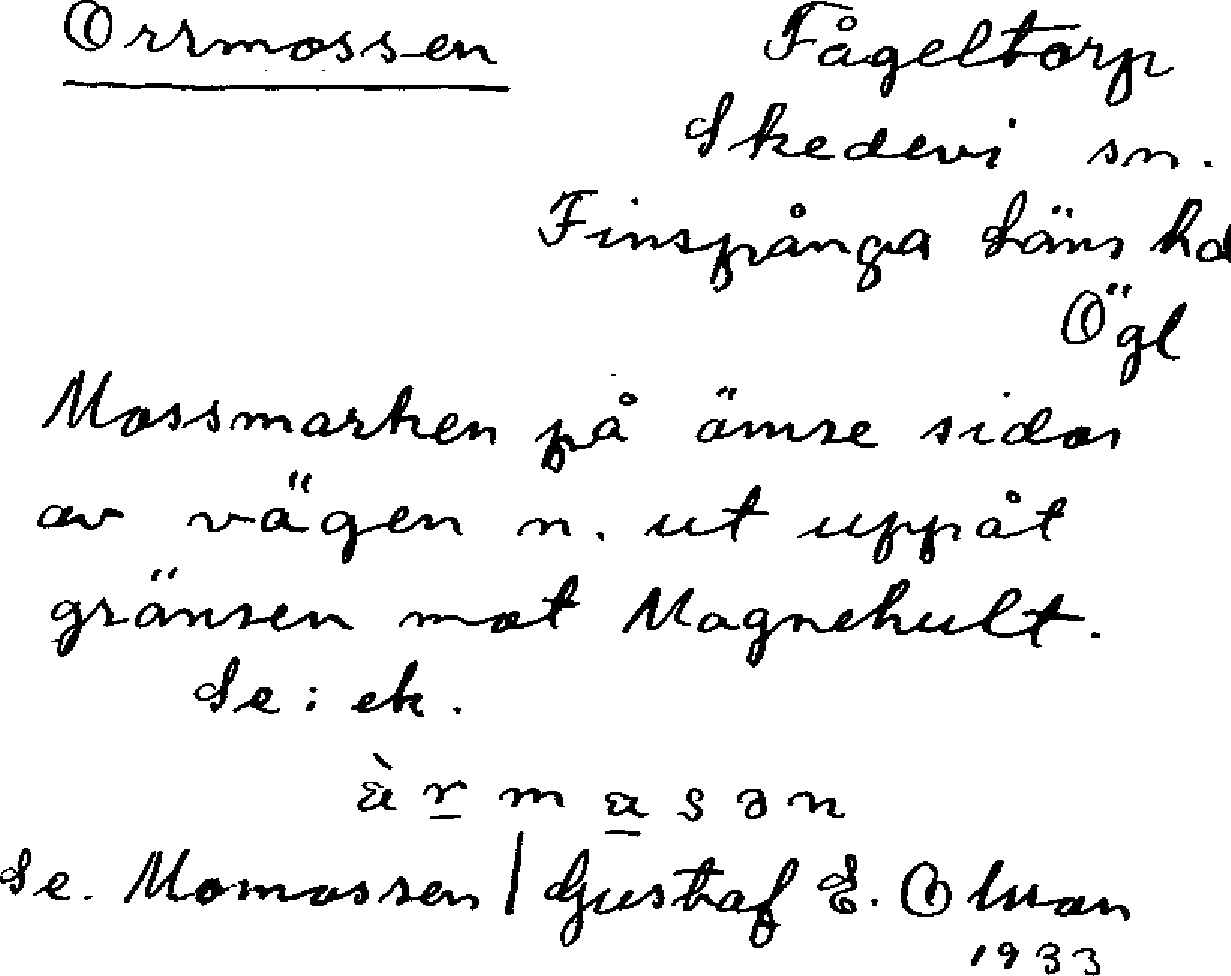 Orrmossen
Fågeltorp
Skedevi sn.
Finspånga läns hd
Ögl
Mossmarken på ömse sidor
av vägen n. ut uppåt
gränsen mot Magnehult.
Se: ek.
Se. Momossen / Gustaf E. Olsson
1933